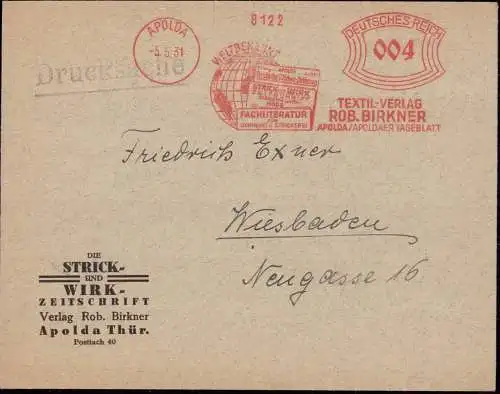 8122
APOLDA
-5.5.31
DEUTSCHES REICH
004
Drucksache
WELTBEKANNT
APOLDA
STRICK- U. WIRK
FACHLITERATUR
TEXTIL-VERLAG
ROB. BIRKNER
APOLDA/APOLDAER TAGEBLATT
Friedrich Exner
Wiesbaden
Neugasse 16
DIE
STRICK-
UND
WIRK-
ZEITSCHRIFT
Verlag Rob. Birkner
Apolda Thür.
Postfach 40